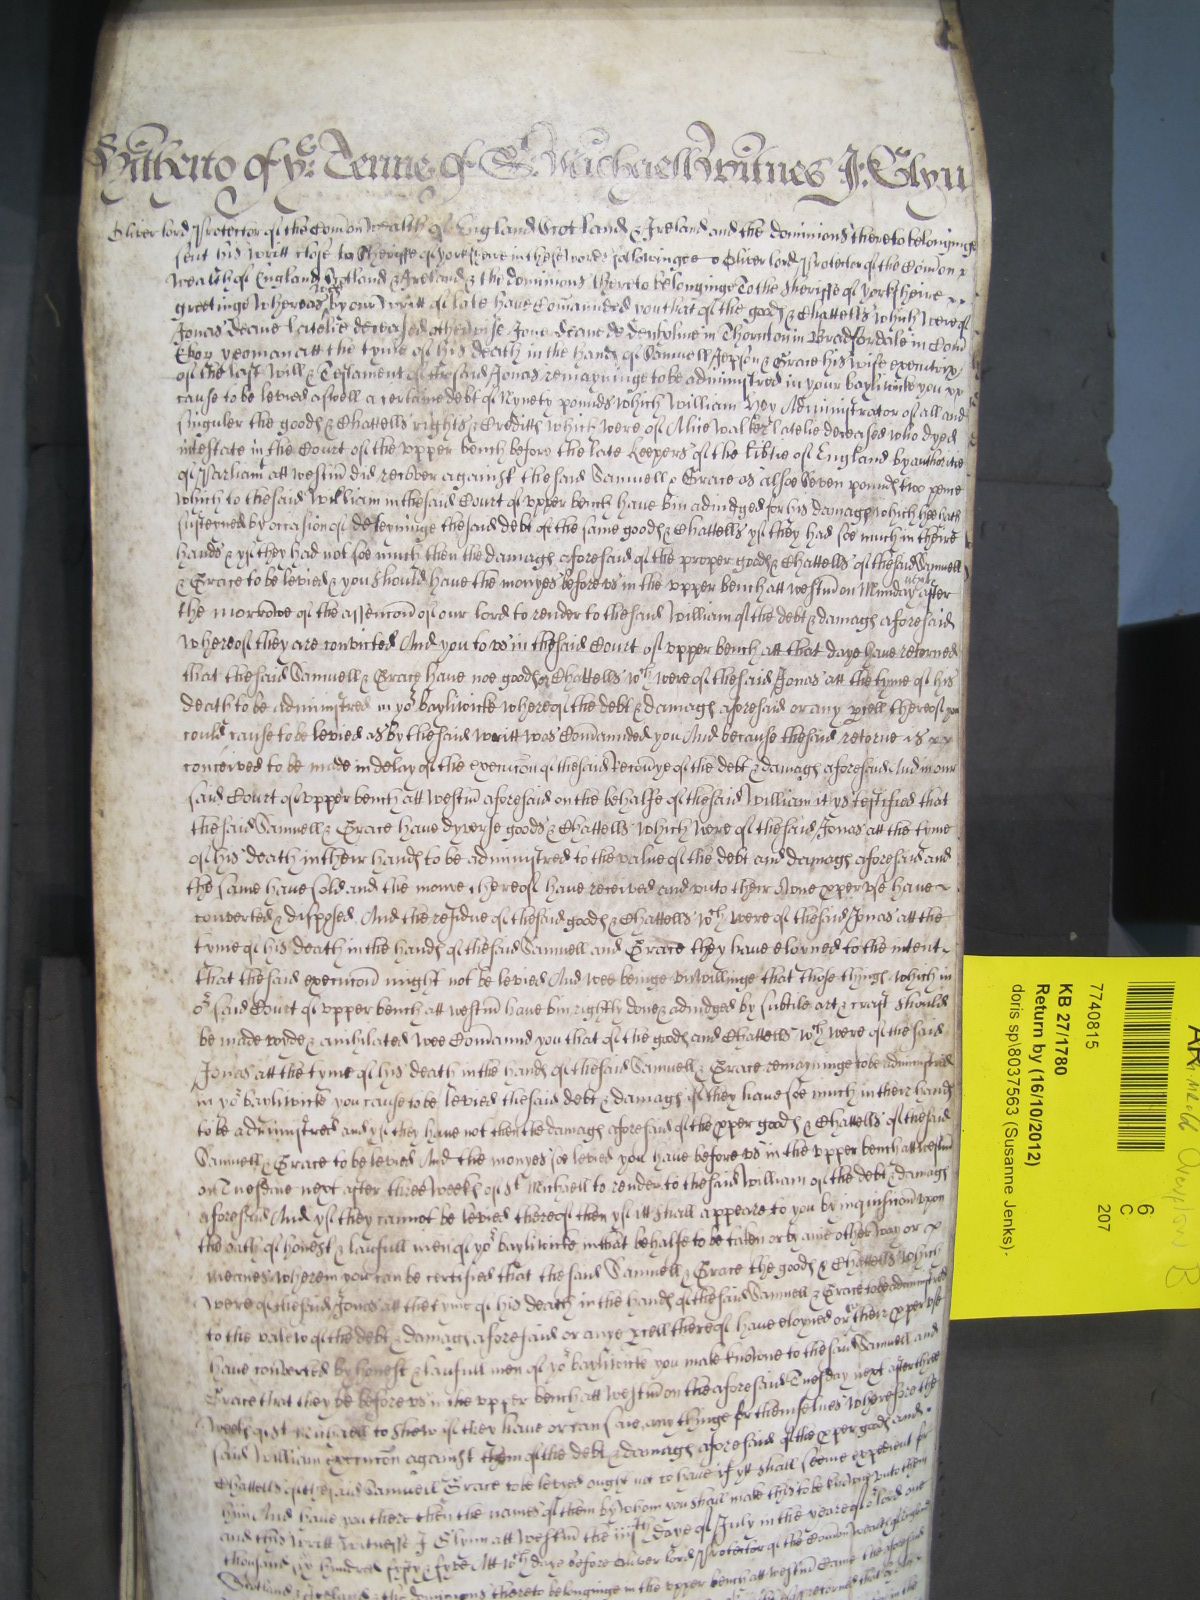 Hitherto of ye Terme of St Michaell Witnes J: Glyn
Oliver lord Protector of the Comon Wealth of England Scotland & Ireland and the dominions thereto belonginge
sent his writt close to Sheriffe of Yorksheire in these words followinge Oliver lord Protector of the Comon
Wealth of England Scotland & Ireland & the dominions thereto belonginge To the Sheriffe of Yorksheire
greetinge Whereas by our writt of late have Comaunded you that of the goods & Chattells which were of
Jonas Deane latelie deceased otherwise Jonas Deane de denholme in Thornton in Bradfordale in Com
Ebor yeoman att the tyme of his death in the hands of Samuell Jepson & Grace his wife executrix
of the last will & Testament of the said Jonas remayninge to be administred in your bayliwicke you
cause to be levied aswell a certaine debt of Nynety pounds which William Administrator of all and
singuler the goods & Chattells rights & Creditts which were of Alice Walker latelie deceased who dyed
intestate in the Court of the upper bench before the late Keepers of the libtie of England by authoritie
of Parliamt att westm did recover against the said Samuell & Grace as alsoe Seven pounds two pence
which to the said William in the said Court of upper bench have bin adiudged for his damags which hee hath
susteyned by occasion of deteyninge the said debt of the same goods & Chattells yf they had soe much in theire
hands & yf they had not soe much then the damags aforesaid of the proper goods & Chattells of the said Samuell
& Grace to be levied & you should have the monyes before us in the upper bench att westm on Munday next after
the morrowe of the assencon of our lord to render to the said William of the debt & damags aforesaid
whereof they are convicted And you to us in the said Court of upper bench att that daye have retorned
that the said Samuell & Grace have noe goods or Chattells wch were of the said Jonas att the tyme of his
death to be administred in yor bayliwicke whereof the debt & damags aforesaid or any pcell thereof you
could cause to be levied as by the said writt was Comaunded you And because the said retorne is
conceived to be made in delay of the execucon of the said Recovye of the debt & damags aforesaid And in our
said Court of upper bench att westm aforesaid on the behalfe of the said William it ys testified that
the said Samuell & Grace have dyverse goods & Chattells which were of the said Jonas att the tyme
of his death in their hands to be administred to the value of the debt and damags aforesaid and
the same have sold and the monie thereof have received and unto their owne pper use have
converted & disposed And the residue of the said goods & Chattells wch were of the said Jonas att the
tyme of his death in the hands of the said Samuell and Grace they have eloyned to the intent
that the said execucon might not be levied And wee beinge unwillinge that those things which in
or said Court of upper bench att westm have bin rightly done & adiudged by subtile art & craft should
be made voyde & anihilated Wee Comaund you that of the goods and Chattells wch were of the said
Jonas att the tyme of his death in the hands of the said Samuell & Grace remayninge to be administred
in yor bayliwicke you cause to be levied the said debt & damags yf they have soe much in their hands
to be administred and yf they have not then the damags aforesaid of the pper goods & Chattells of the said
Samuell & Grace to be levied And the monyes soe levied you have before us in the upper bench att westm
on Tuesdaie next after three weeks of St Michaell to render to the said William of the debt & damags
aforesaid And yf they cannot be levied thereof then yf itt shall appeare to you by inquisicon upon
the oath of honest & laufull men of yor bayliwicke in that behalfe to be taken or by anie other way or
meanes wherein you can be certified that the said Samuell & Grace the goods & Chattells which
were of the said Jonas att the tyme of his death in the hands of the said Samuell & Grace to be administred
to the valew of the debt & damags aforesaid or anye pcell thereof have eloyned or to their pper use
have converted by honest & laufull men of yor bayliwicke you make knowne to the said Samuell and
Grace that they be before us in the upper bench att westm on the aforesaid Tuesday next after three
weeks of St Michaell to shew if they have or can saie any thinge for themselves wherefore the
said William execucon against them of the debt & damags aforesaid of the pper goods and
Chattells of the said Samuell & Grace to be levied ought not to have if ytt shall seeme expedient for
him And have you there then the names of them by whom you shall make this to be knowne unto them
and this writt Witnesse J Glynn att westm the iiijth daye of July in the yeare of or lord one
thousand six hundred fyfty & fyve Att wch daye before Oliver lord Protector of the Comon wealth of England
Scotland & Ireland & the dominions thereto belonginge in the upper bench att westm Came the aforesaid
7740815
KB 27/1780
Return by (16/10/2012)
doris sp\8037563 (Susanne Jenks)-
6
C
207